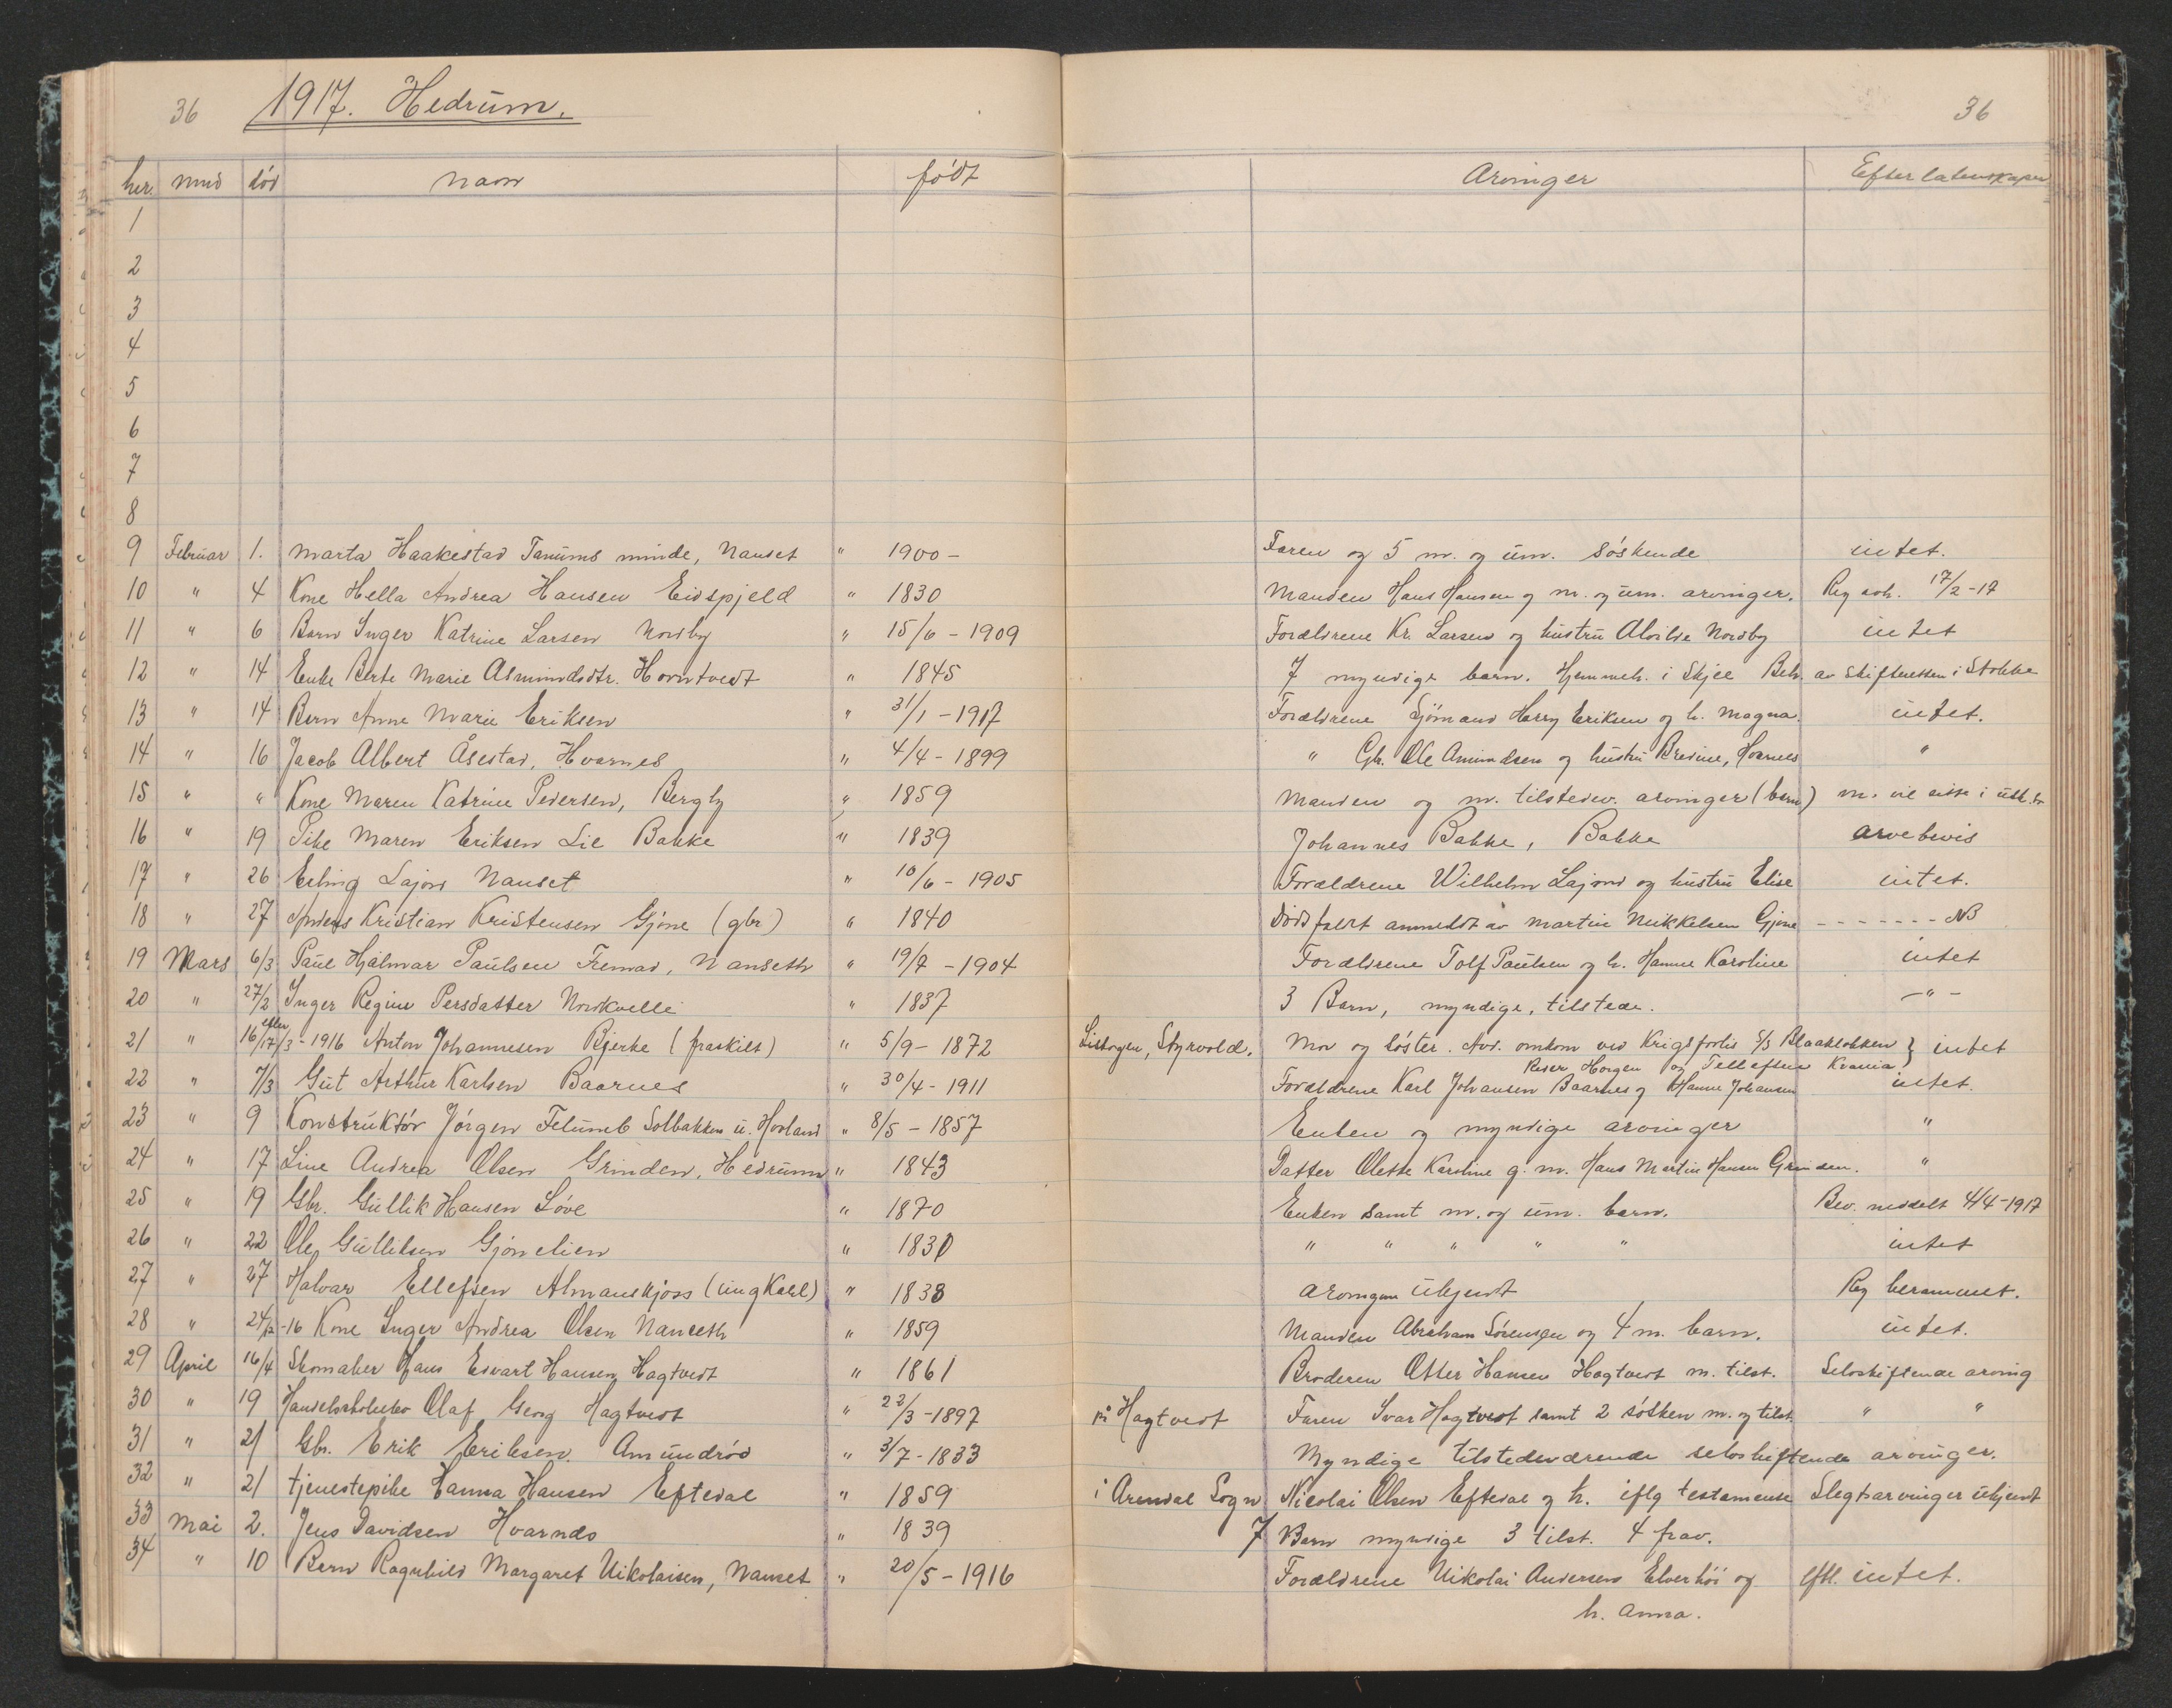 36 1917. Hedrum. 36
hver. mnd død navn født Arvinger Efterlatenskaper
1
2
3
4
5
6
7
8
9 Februar 1. Marta Haakestad Tanums minde, Nanset " 1900 - Faren og 5 m. og um. søskende intet.
10 " 4 Kone Hella Andrea Hansen Eidspjeld " 1830 Manden Hans Hansen og m. og um. arvinger. Reg avh. 17/2-17
11 " 6 Barn Inger Katrine Larsen Nordby " 15/6 - 1909 Forældrene Kr. Larsen og hustru Alvilde Nordby intet
12 " 14 Enke Berte Marie Asmundsdtr. Horntvedt " 1845 7 myndige barn. Hjemmeh. i Skjee Beh. av Skifteretten i Stokke
13 " 14 Barn Anne Marie Eriksen " 31/1 - 1917 Forældrene Sjømand Harry Eriksen og h. Magna. intet.
14 " 16 Jacob Albert Åsestad, Hvarnes " 4/4 - 1899 " Gbr. Ole Amundsen og hustru Bredine, Hvarnes "
15 " " Kone Maren Katrine Pedersen, Bergby " 1859 Manden og m. tilstedev. arvinger (barn) m. vil sitte i usk. bo
16 " 19 Pike Maren Eriksen Lie Bakke " 1839 Johannes Bakke, Bakke arvebevis
17 " 26 Erling Lajord Nanset " 10/6 - 1905 Forældrene Wilhelm Lajord og hustru Elise intet.
18 " 27 Anders Kristian Kristensen Gjøne (gbr) " 1840 Dødsfaldt anmeldt av Martin Mikkelsen Gjøne - - - - - - - NB
19 Mars 6/3 Paul Hjalmar Paulsen Fremad, Nanseth " 19/7 - 1904 Forældrene Tolf Paulsen og h. Hanne Karoline intet
20 " 27/2 Inger Regine Persdatter Nordkvelle " 1837 3 Barn, myndige, tilstede. - " -
21 " 16 eller 17/3 - 1916 Anton Johannesen Bjerke (fraskilt) " 5/9 - 1872 Listogen, Styrvold. Mor og søster. Avd. omkom ved Krigsforlis S/S Blaaklokken } intet
Peser Horgen og Tellefine Kvania
22 " 7/3 Gut Arthur Karlsen Baarnes " 30/4 - 1911 Forældrene Karl Johansen Baarnes og Hanne Johansen intet.
23 " 9 Konstruktør Jørgen Felumb Solbakken u. Hovland " 8/5 - 1857 Enken og myndige arvinger "
24 " 17 Line Andrea Olsen Grinden, Hedrum " 1843 Datter Olette Karoline g. m. Hans Martin Hansen Grinden. "
25 " 19 Gbr. Gullik Hansen Løve " 1870 Enken samt m. og um. barn. Bev. meddelt 4/4-1917
26 " 22 Ole Gulliksen Gjønelien " 1831 " " " " " intet
27 " 27 Halvor Ellefsen Almanskjøss (ungkarl) " 1838 arvingene ukjendt Reg berammet.
28 " 24/12-16 Kone Inger Andrea Olsen Nanseth " 1859 Manden Abraham Sørensen og 4 m. barn. intet.
29 April 16/4 Skomaker Hans Edvart Hansen Hagtvedt " 1861 Broderen Otter Hansen Hagtvedt m. tilst. Selvskiftende arving
30 " 19 Handelsskoleelev Olaf Georg Hagtvedt " 22/3 - 1897 på Hagtvedt Faren Ivar Hagtvedt samt 2 søsken m. og tilst. " "
31 " 21 Gbr. Erik Eriksen Amundrød " 3/7 - 1833 Myndige tilstedeværende selvskiftende arvinger.
32 " 21 tjenestepike Hanna Hansen Eftedal " 1859 i Arendal Sogn Nicolai Olsen Eftedal og h. iflg testamente Slegtsarvinger ukjent
33 Mai 2. Jens Davidsen Hvarnes " 1839 7 Barn myndige 3 tilst. 4 frav.
34 " 10 Barn Ragnhild Margaret Nikolaisen, Nanset " 20/5 - 1916 Forældrene Nikolai Andersen Elverhøi og eftl. intet.
h. Anna.